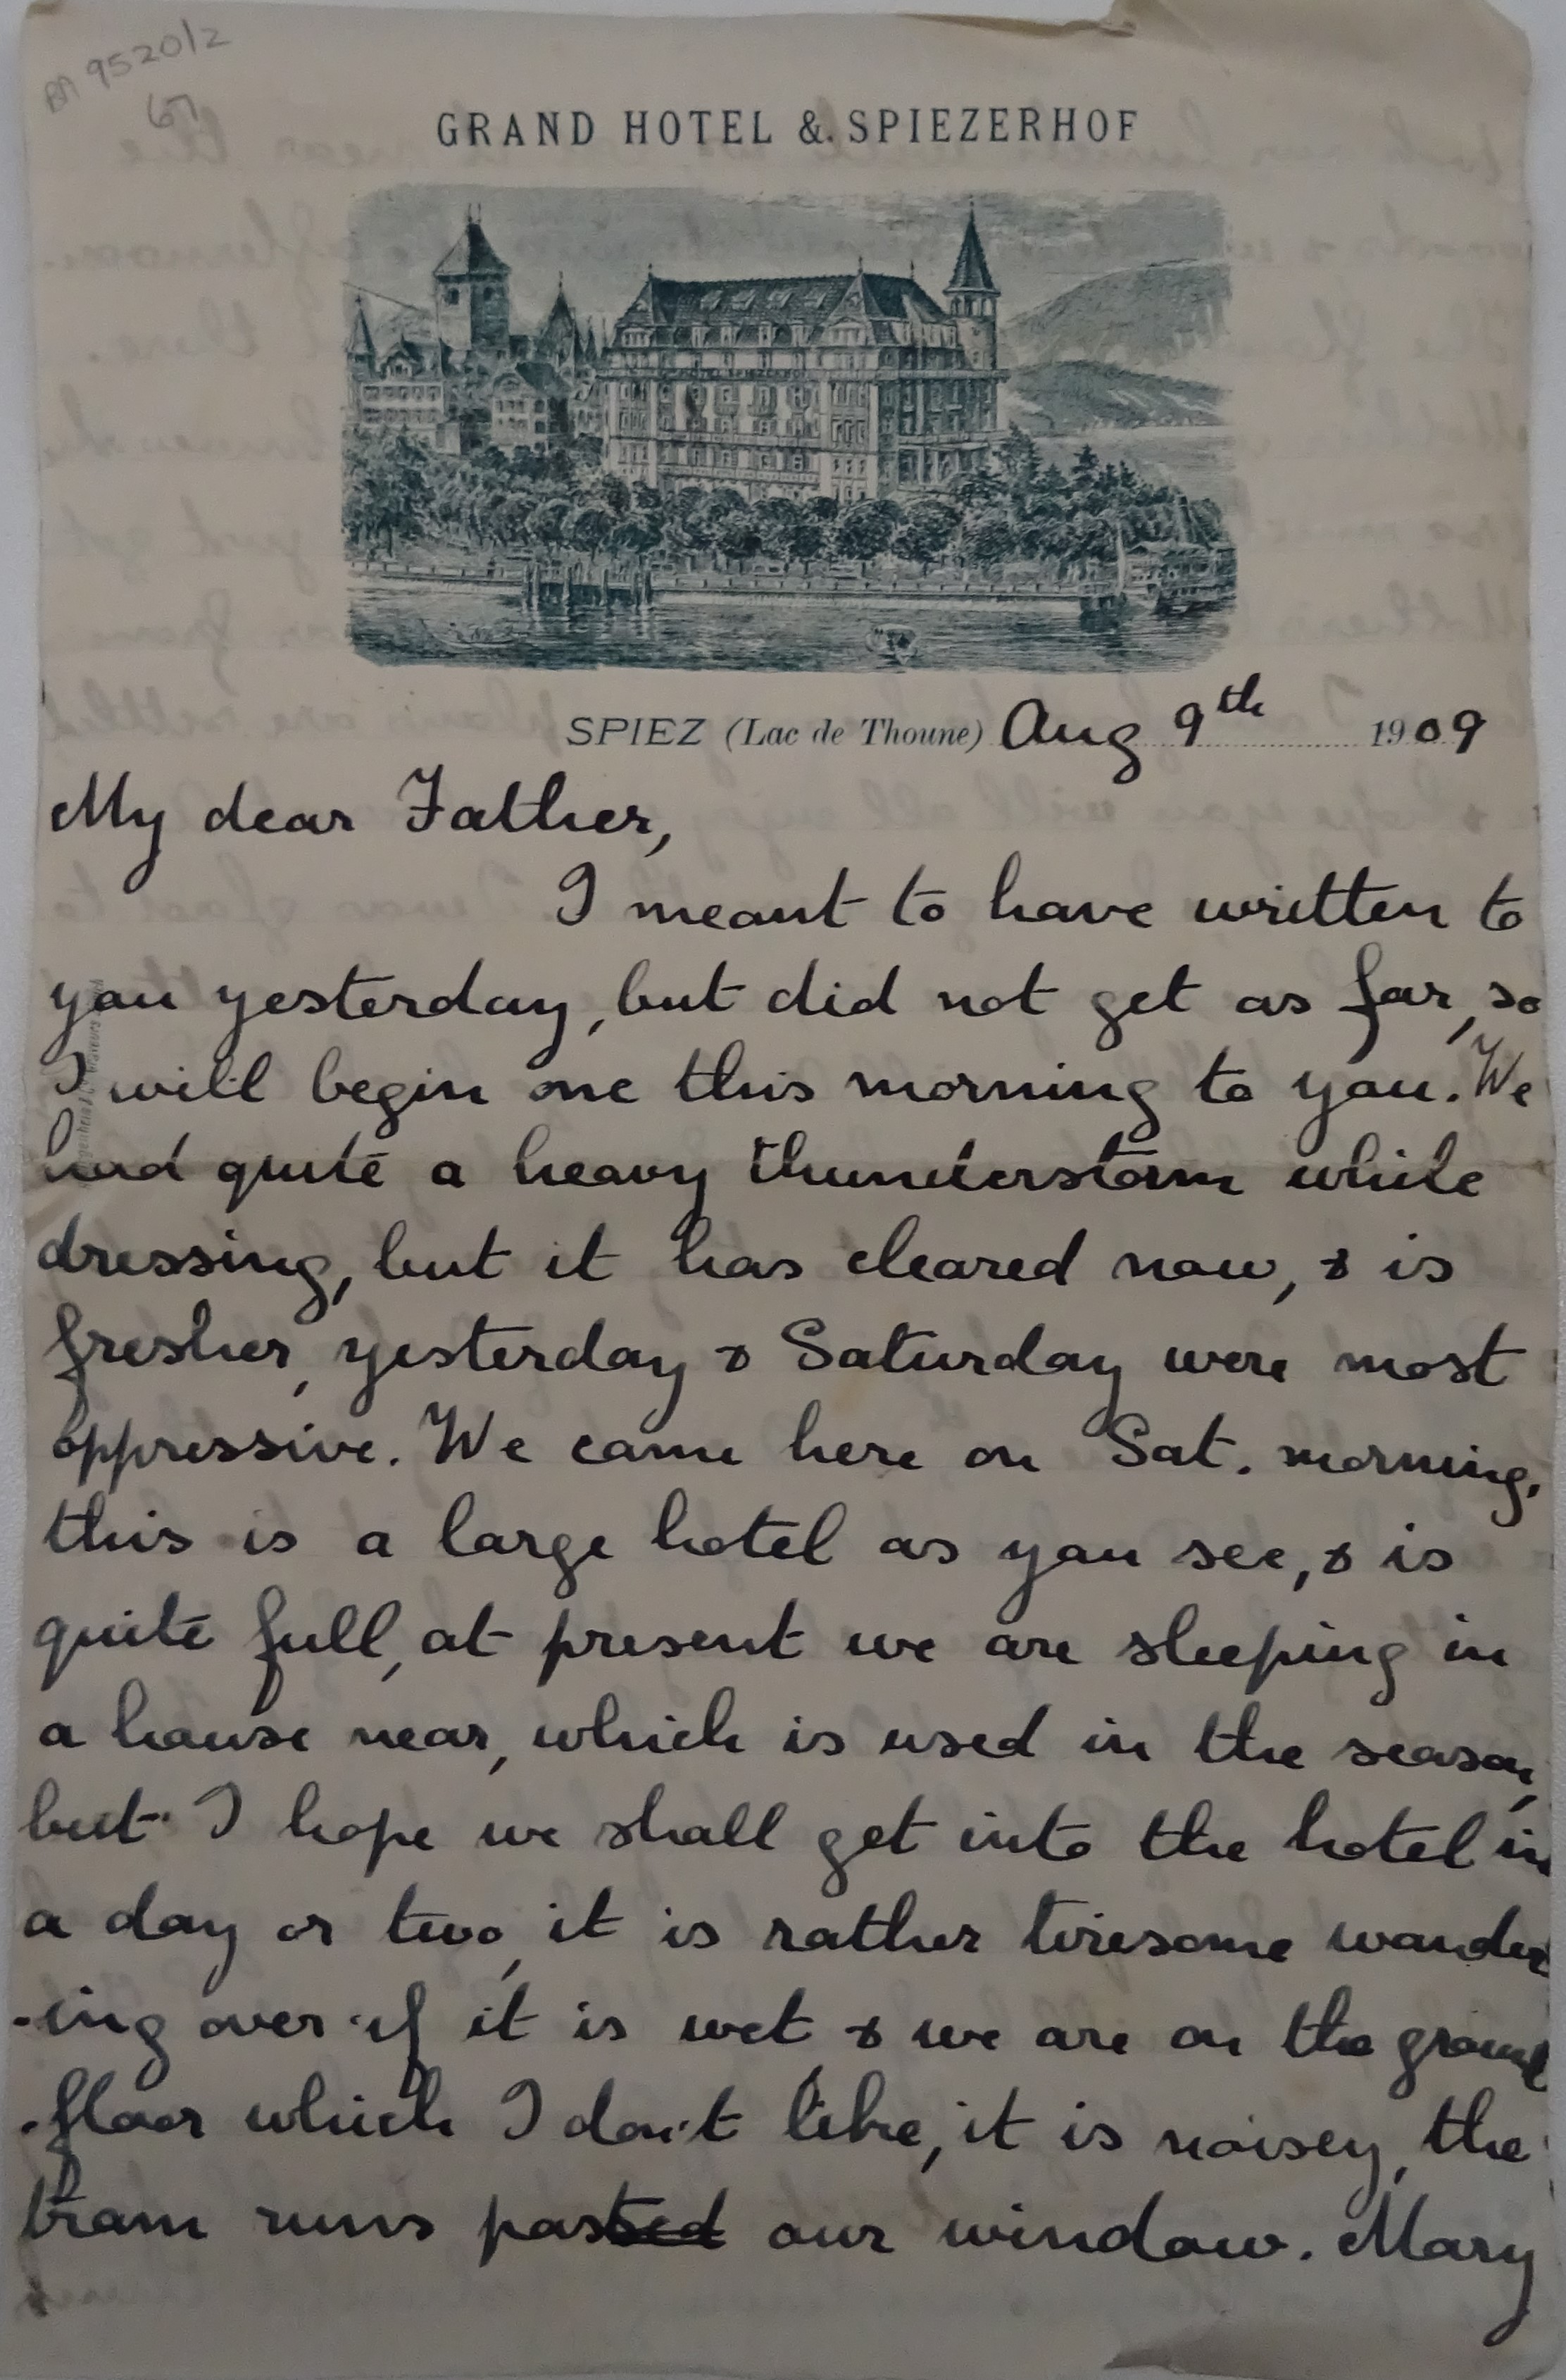 BA 9520/2
67
GRAND HOTEL & SPIEZERHOF
SPIEZ (Lac de Thoune) Aug 9th 1909
My dear Father,
I meant to have written to
you yesterday, but did not get as far, so
I will begin one this morning to you. We
had quite a heavy thunderstorm while
dressing, but it has cleared now, & is
fresher, yesterday & Saturday were most
oppressive. We came here on Sat. morning,
this is a large hotel as you see, & is
quite full, at present we are sleeping in
a house near, which is used in the season,
but I hope we shall get into the hotel in
a day or two, it is rather tiresome wander
-ing over if it is wet & we are on the ground
-floor which I don't like, it is noisey, the
tram runs past our window. Mary